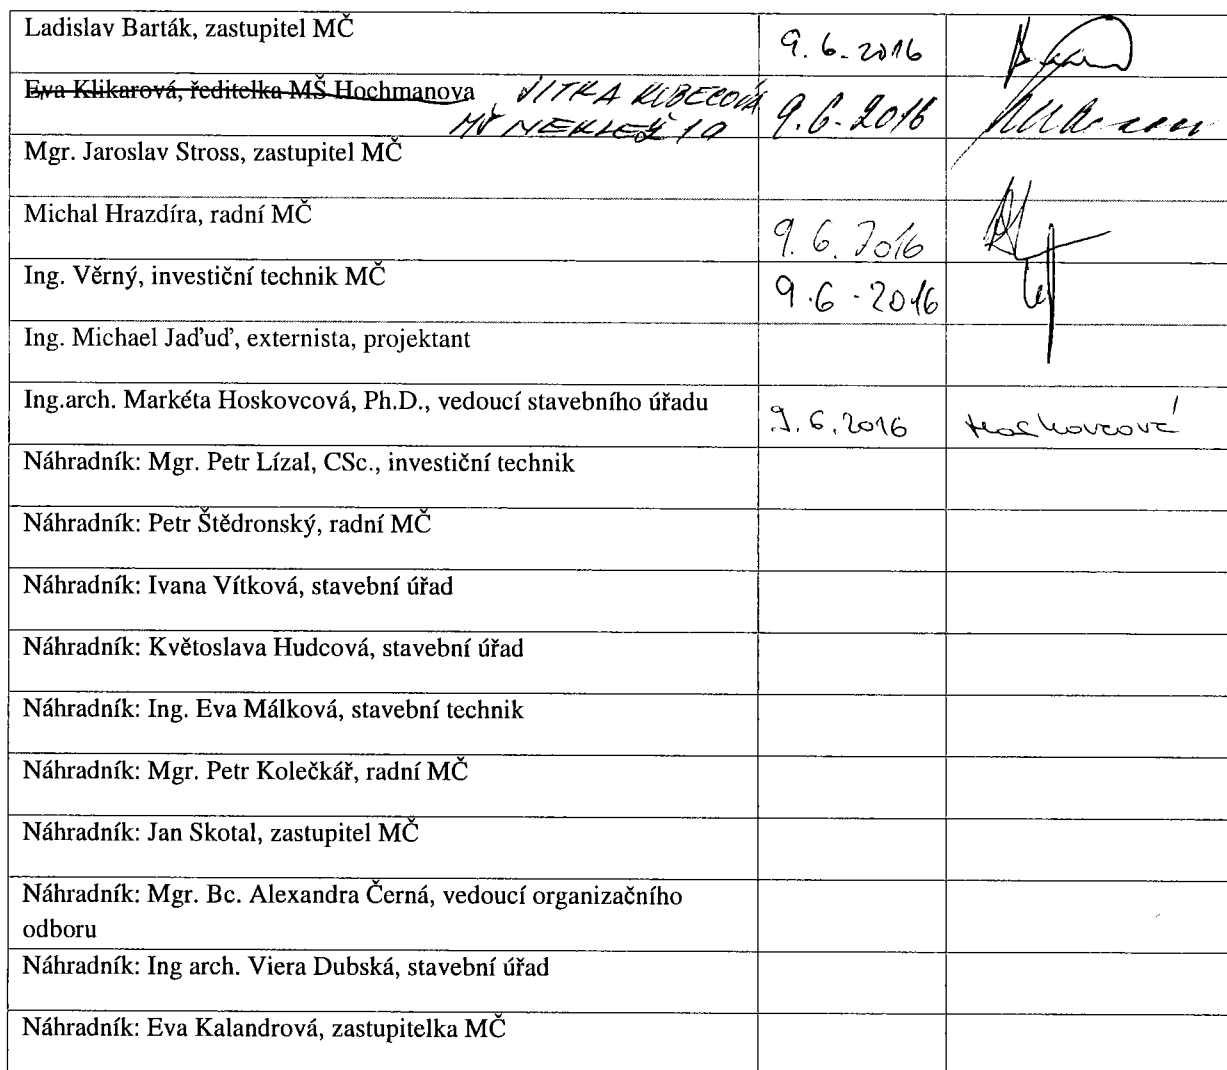 Ladislav Barták, zastupitel MČ 9.6.2016
Eva Klikarová, ředitelka MŠ Hochmanova, JITKA KUBECOVÁ
MŠ 9.6.2016
Mgr. Jaroslav Stross, zastupitel MČ
Michal Hrazdíra, radní MČ 9.6.2016
Ing. Věrný, investiční technik MČ 9.6.2016
Ing. Michael Jaďuď, externista, projektant
Ing.arch. Markéta Hoskovcová, Ph.D., vedoucí stavebního úřadu 9.6.2016 Hoskovcová
Náhradník: Mgr. Petr Lízal, CSc., investiční technik
Náhradník: Petr Štědronský, radní MČ
Náhradník: Ivana Vítková, stavební úřad
Náhradník: Květoslava Hudcová, stavební úřad
Náhradník: Ing. Eva Málková, stavební technik
Náhradník: Mgr. Petr Kolečkář, radní MČ
Náhradník: Jan Skotal, zastupitel MČ
Náhradník: Mgr. Bc. Alexandra Černá, vedoucí organizačního
odboru
Náhradník: Ing arch. Viera Dubská, stavební úřad
Náhradník: Eva Kalandrová, zastupitelka MČ